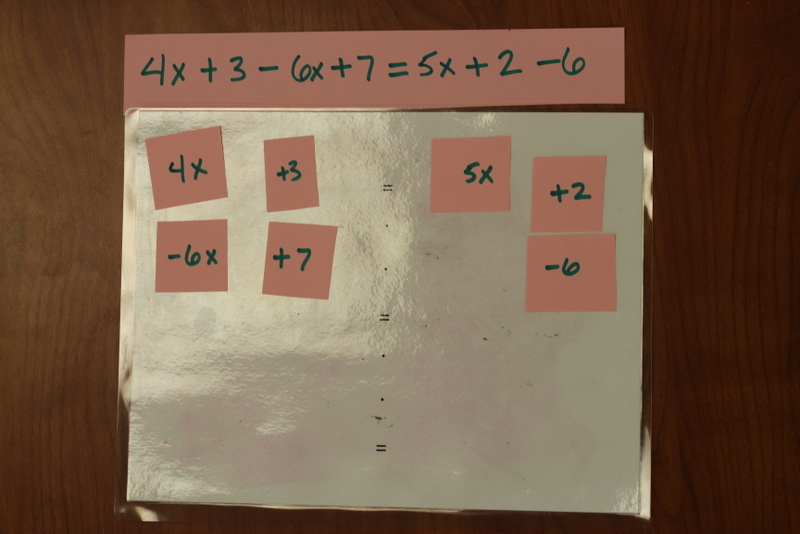 4x + 3 - 6x + 7 = 5x + 2 - 6
4x +3 = 5x +2
-6x +7 -6
=
=